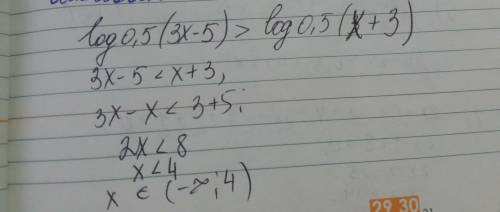 log0,5(3x-5) > log0,5(x+3)
3x-5 < x+3,
3x-x < 3+5;
2x < 8
x < 4
x ∈ (-∞; 4)
29.30